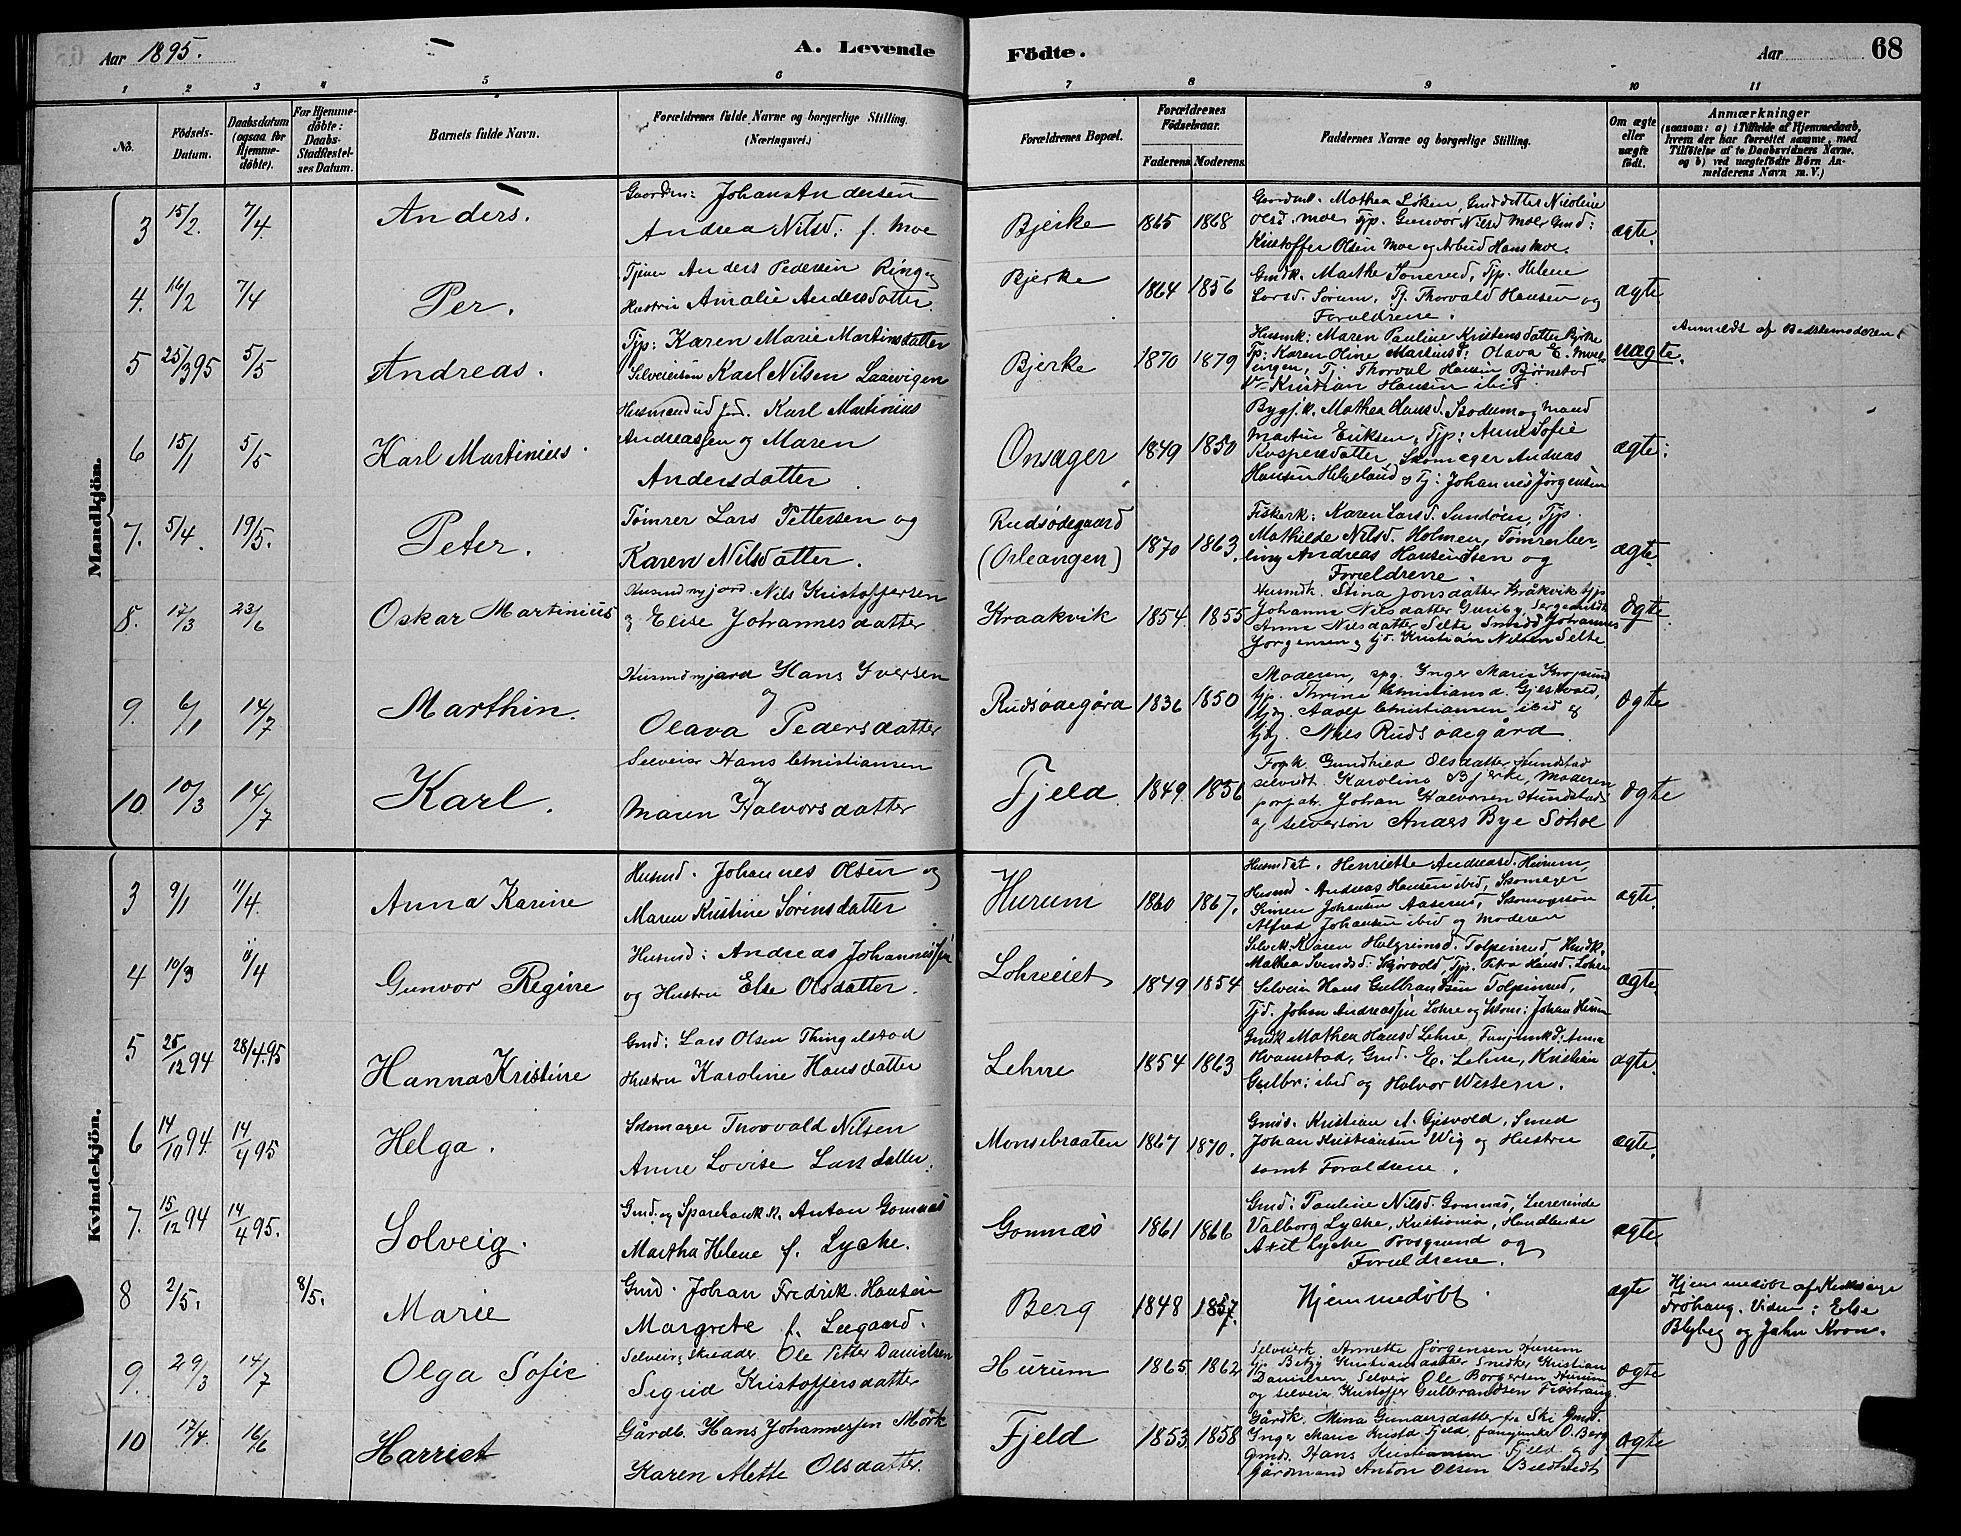 Aar 1895.
A. Levende
Födte.
Aar
68
1 2 3 4 5 6 7 8 9 10 11
No.
Födsels-Datum.
Daabsdatum (ogsaa for Hjemme-döbte).
For Hjemme-döbte: Daabs-Stadfæstel-ses Datum.
Barnets fulde Navn.
Forældrenes fulde Navne og borgerlige Stilling. (Næringsvei.)
Forældrenes Bopæl.
Forældrenes Födselsaar.
Faderens. Moderens.
Faddernes Navne og borgerlige Stilling.
Om ægte eller uægte födt.
Anmærkninger
(saasom: a) i Tilfælde af Hjemmedaab, hvem der har forrettet samme, med Tilföielse af to Daabsvidners Navne. og b) ved uægtefödte Börn An-melderens Navn m. V.)
Mandkjön.
3 15/2. 7/4. Anders. Johan Andersen
Andrea Nilsd. f. Moe
Bjerke 1865 1868
Kristoffer Olsen Moe og Arbud Hans Moe.
ægte.
4. 16/2 7/4 Per. Tjener Anders Pedersen Ring og
Hustru Amalie Andersdatter.
Bjerke 1864 1856
Larsd. Sørum, Tj. Thorvald Hansen og
Forældrene.
ægte
5 25/3 95 5/5 Andreas. Tjp: Karen Marie Martinsdatter
Selveiersøn Karl Nilsen Laarvigen
Bjerke 1870 1879
Husmk: Maren Pauline Kristensdatter Bjrke
Tp: Karen Oline Martinsd:
Tj. Thorval Hansen Bjørnstad
Kristian Hansen ibid.
uægte.
Anmeldt af Bedstemoderen
6 15/1 5/5 Karl Martinius. Karl Martinius
Andreassen og Maren
Andersdatter
Onsager 1849 1850
Mathea Hansd. Bodum og Mand
Martin Eriksen, Tjp: Anne Sofie
Kaspersdatter, Skomager Andreas
Hansen Helgeland og Tj: Johannes Jörgensen
ægte:
7. 5/4. 19/5. Peter. Tømrer Lars Pettersen og
Karen Nilsdatter.
Rudsødegaard
(Orleangen)
1870 1863.
Fiskerk: Karen Larsd. Sundøen, Tjp.
Mathilde Nilsd. Holmen, Tømrerlær-
ling Andreas Hansen Isen og
Forældrene.
ægte.
8. 17/3 23/6 Oskar Martinius Husmd m jord. Nils Kristoffersen
og Elise Johannesdatter
Kraakvik 1854. 1855
Husmdk. Stina Jonsdatter Kråkvik tjp.
Johanne Nilsdatter
Anne Nilsdatter Selte Smed Johannes
Jorgensen og tj. Kristian Nilsen Selte
Øgte.
9. 6/1 14/7 Marthin. Husmd m jord Hans Iversen
og
Olava Pedersdatter
Rudsødegård 1836 1850
Moderen, Inger Marie
tjp. Thrine Christiansd. Gjesvold,
Adolf Christiansen ibid og
Nils Rudsødegård.
øgte
10. 10/3 14/7 Karl. Selveier Hans Christiansen
og
Maren Halvorsdatter
Fjeld. 1849. 1856
Gundhild Olsdatter Hundstad
Karoline Bjerke, Moderen
Johan Halvorsen Hundstad
og selversøn Anders Bye
øgte
Kvindekjön.
3 9/1 11/4. Anna Karine Husmd. Johannes Olsen og
Maren Kristine Sørensdatter
Hurum 1860 1867.
Henriette Andreasd. Hurum,
Husmd. Andreas Hansen ibid, Skomager
Simen Johansen Aaserud, Skomagersøn
Alfred Johansen ibid og Moderen
ægte.
4 10/3 11/4 Gunvor Regine Husmd: Andreas Johannessen
og Hustru Else Olsdatter.
Lohreeiet 1849 1854
Karen Halgrimsd. Tolpinrud, Husmk.
Mathea Svendsd. Tjp. Petra Hansd. Lohre
Selveier Hans Gulbrandsen Tolpinrud,
Tjd. Johan Andreassen Lohre og Skom: Johan Hurum
ægte.
5 25/12 94 28/4. 95 Hanna Kristine Gmd: Lars Olsen Thingelstad
Hustru Karoline Hansdatter
Lehne 1854 1863
Gmdk Mathea Hansd Lehne, Anna
Hvamstad, Gmd. E. Lehne, Kristian
Gulbr: ibid og Halvor Western.
ægte.
6 14/10 94. 14/4 95 Helga. Skomager Thorvald Nilsen
Anne Lovise Larsdatter.
Monsebraaten 1867 1870.
Gmd. Kristian A. Gjesvold, Smed
Johan Kristiansen Wig og Hustru
samt Forældrene.
ægte.
7. 15/12 94 14/4 95. Solveig. Gmd. og Sparebank k. Anton Gomnæs
Martha Helene f. Lyche.
Gomnæs 1861 1866
Gmd: Pauline Nilsd. Gomnæs, Lærerinde
Valborg Lyche, Kristiania, Handlende
Axel Lyche Porsgrund og
Forældrene.
ægte.
8 2/5. 8/5. Marie Gmd. Johan Fredrik Hansen
Margrete f. Leegaard.
Berg 1848 1857.
Hjemmedøbt.
ægte
Hjemmedøbt af
Frøhaug. Vidner: Else
Blyberg og John Kron.
9. 29/3 14/7 Olga Sofie Selveier, skrædder Ole Petter Danielsen
Sigrid Kristoffersdatter
Hurum 1865 1862
Selveierk Annette Jørgensen Hurum
Kristiansdatter Snedker Kristian
Danielsen, Selveier Ole Borgersen Hurum
og selveier Kristoffer Gulbrandsen
øgte
10 17/4. 16/6 Harriet Gårdb. Hans Johannessen Mörk
Karen Alette Olsdatter.
Fjeld 1853. 1858
Gårdk. Mina Gundersdatter fra Ski Gmd.
Inger Marie Kristd Fjeld, O. Berg
Gmd. Hans Kristiansen Fjeld og
Gårdmand Anton Olsen
øgte